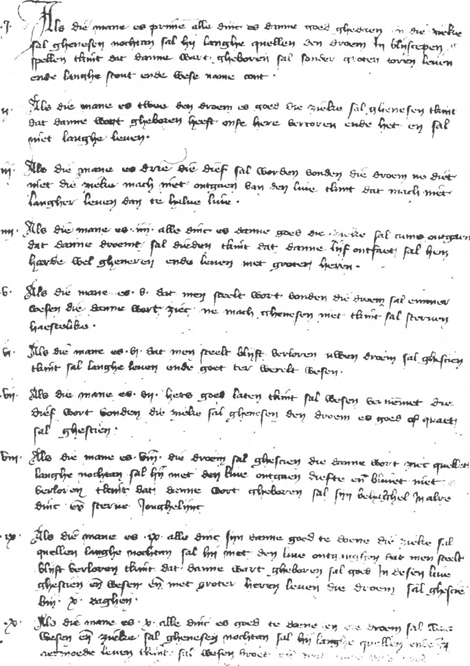 .j. Als die mane es prime alle dinc es danne goed ghedaen die zieke
sal ghenesen nochtan sal hij langhe quellen den droem in bliscepen
spellen tkint dat danne wart gheboren sal sonder groten toren leven
ende langhe stout ende wese name cont .
ij . Als die mane es twee den droem es goed die zieke sal ghenesen tkint
dat danne wort gheboren heeft onse here vercoren ende het en sal
niet langhe leven .
iij . Als die mane es drie die dief sal worden vonden die droem ne diet
niet die zieke mach niet ontgaen van den live tkint dat mach niet
langher leven dan te halve live .
iiij . Als die mane es . iiij . alle dinc es danne goed die zieke sal ontgaen
dat danne droemt sal dieden tkint dat danne lijf ontfaet sal hem
harde wel gheneren ende leven met groter heren .
v . Als die mane es . v . dat men steelt wort vonden die droem sal emmer
wesen die danne wort ziec ne mach ghenesen niet tkint sal sterven
haestelike .
vi . Als die mane es . vi . dat men steelt blijft verloren uwen droem sal ghescien
tkint sal langhe leven ende goet ter werelt wesen .
vij . Als die mane es . vij . hets goed laten tkint sal wesen vernemet die
dief wort vonden die zieke sal ghenesen den droem es goed of quaet
sal ghescien .
viij . Als die mane es . viij . die droem sal ghescien die danne wort ziec quellet
langhe nochtan sal hij met den live ontgaen diefte en blivet niet
verloren tkint dat danne wort gheboren sal sijn behaechel in alre
dinc en sterve jonghelinc
ix . Als die mane es . ix . alle dinc sijn danne goed te doene die zieke sal
quellen langhe nochtan sal hij met den live ontganghen dat men steelt
blijft verloren tkint dat danne wart gheboren sal goed in desen live
ghescien en wesen en met groter heren leven die droem sal ghescie
bin . x . daghen .
x . Als die mane es . x . alle dinc es goed te doene en die droem sal
wesen en zieke sal ghenesen nochtan sal hij langhe quellen
leven tkint sal wesen